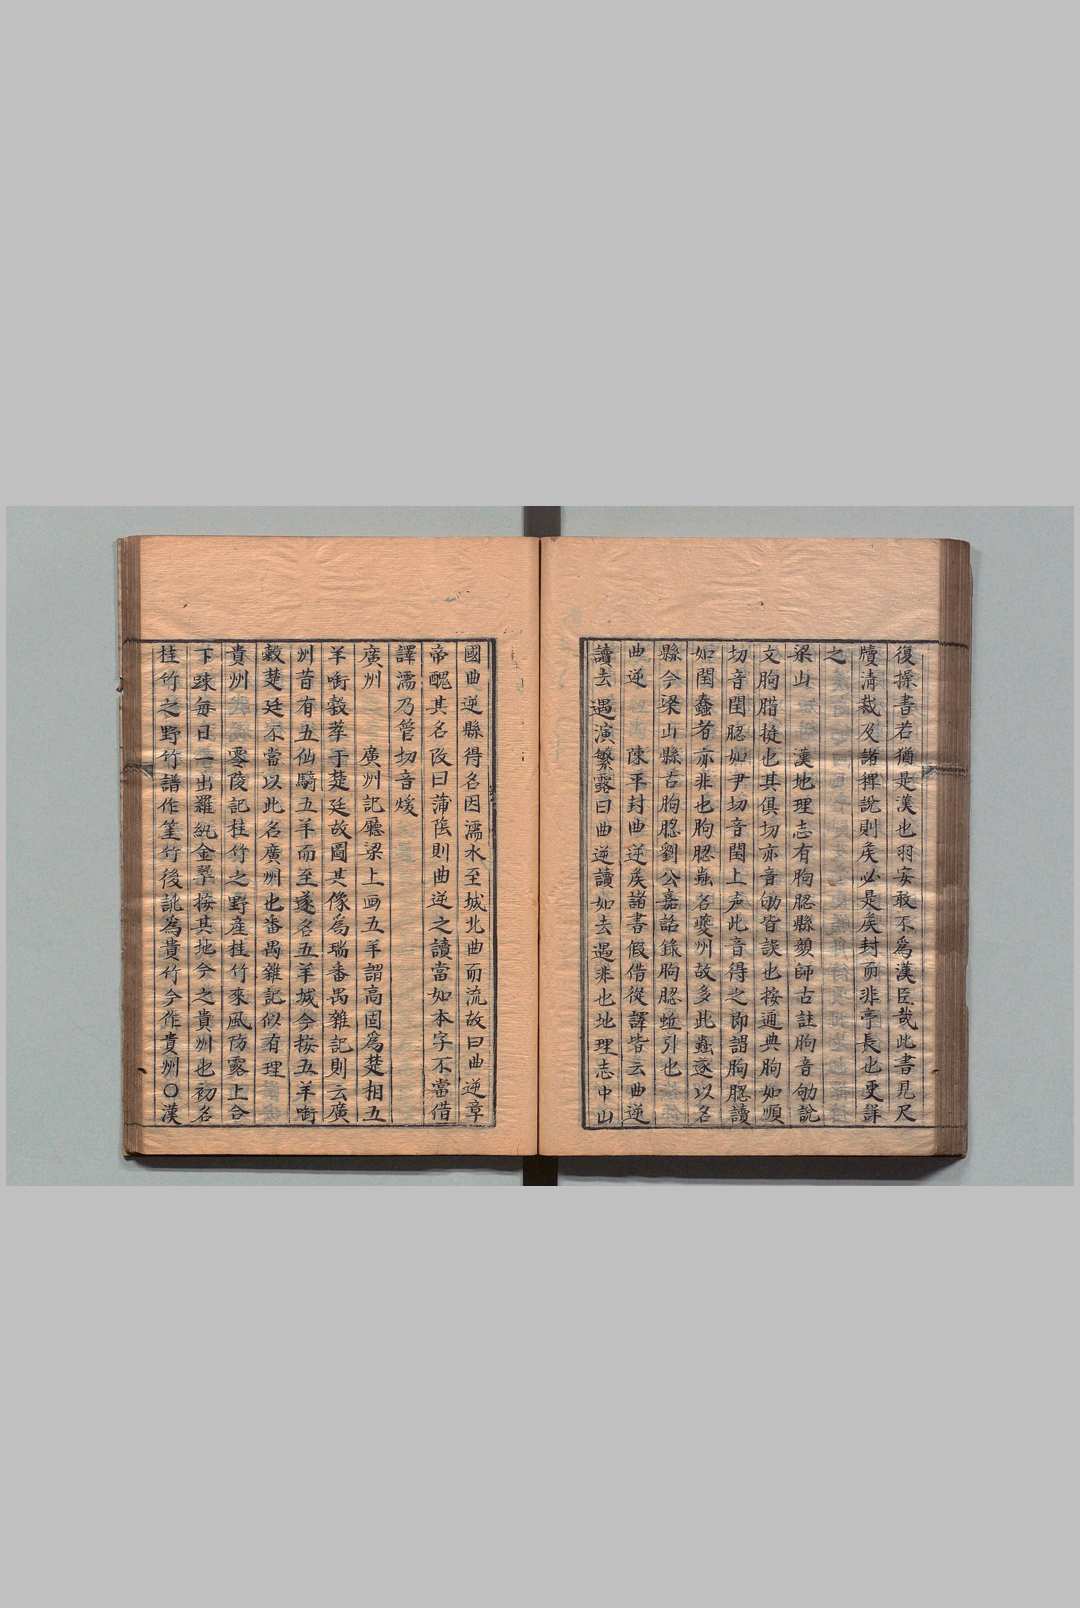 復操書若猶是漢也羽安敢不爲漢臣哉此書見尺
牘清裁及諸稗說則矦必是矦封而非亭長也更詳
之
梁山 漢地理志有朐䏰縣顏師古註朐音劬說
文朐腊挺也其俱切亦音劬皆誤也按通典朐如順
切音閏䏰如尹切音閏上声此音得之即謂朐䏰讀
如閏蠢者亦非也朐䏰蟲名夔州故多此蟲遂以名
縣今梁山縣古朐䏰劉公嘉話錄朐䏰蚯引也
曲逆 陳平封曲逆矦諸書假借從譯皆云曲逆
讀去遇演繁露曰曲逆讀如去遇非也地理志中山
國曲逆縣得名因濡水至城北曲而流故曰曲逆章
帝醜其名改曰蒲陰則曲逆之讀當如本字不當借
譯濡乃管切音煖
廣州 廣州記廳梁上画五羊謂高固爲楚相五
羊啣穀莖于楚廷故圖其像爲瑞番禺雜記則云廣
州昔有五仙騎五羊而至遂名五羊城今按五羊啣
穀楚廷不當以此名廣州也番禺雜記似有理
貴州 零陵記桂竹之野產桂竹來風防露上合
下踈每日一出羅紈金翠按其地今之貴州也初名
桂竹之野竹譜作筀竹後訛為貴竹今作貴州〇漢